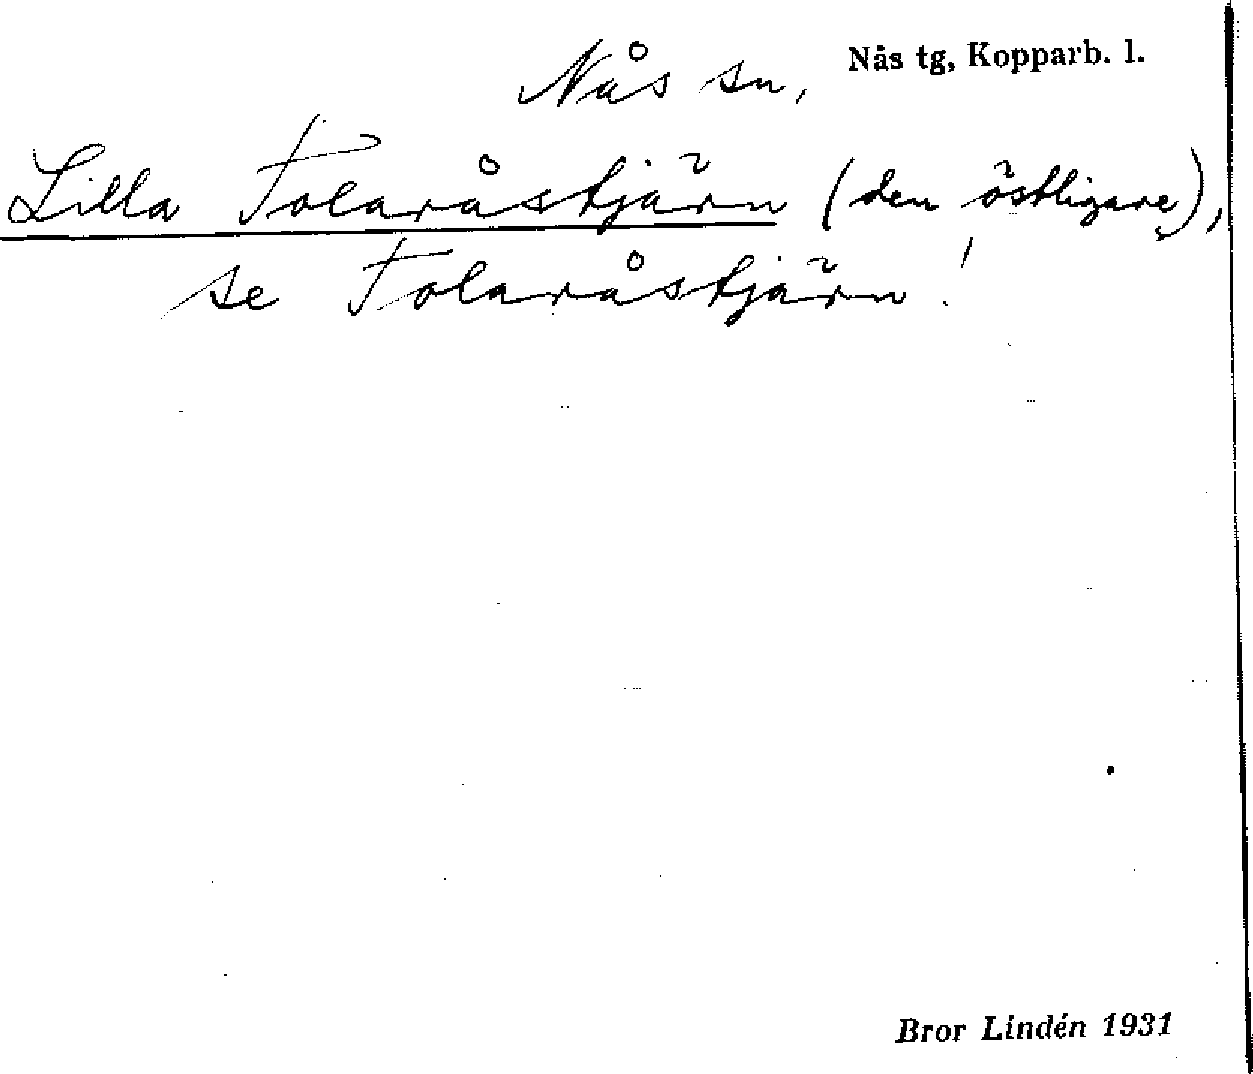 Nås sn, Nås tg, Kopparb. l.
Lilla Tolaråstjärn (den östligare),
se Tolaråstjärn!
Bror Lindén 1931